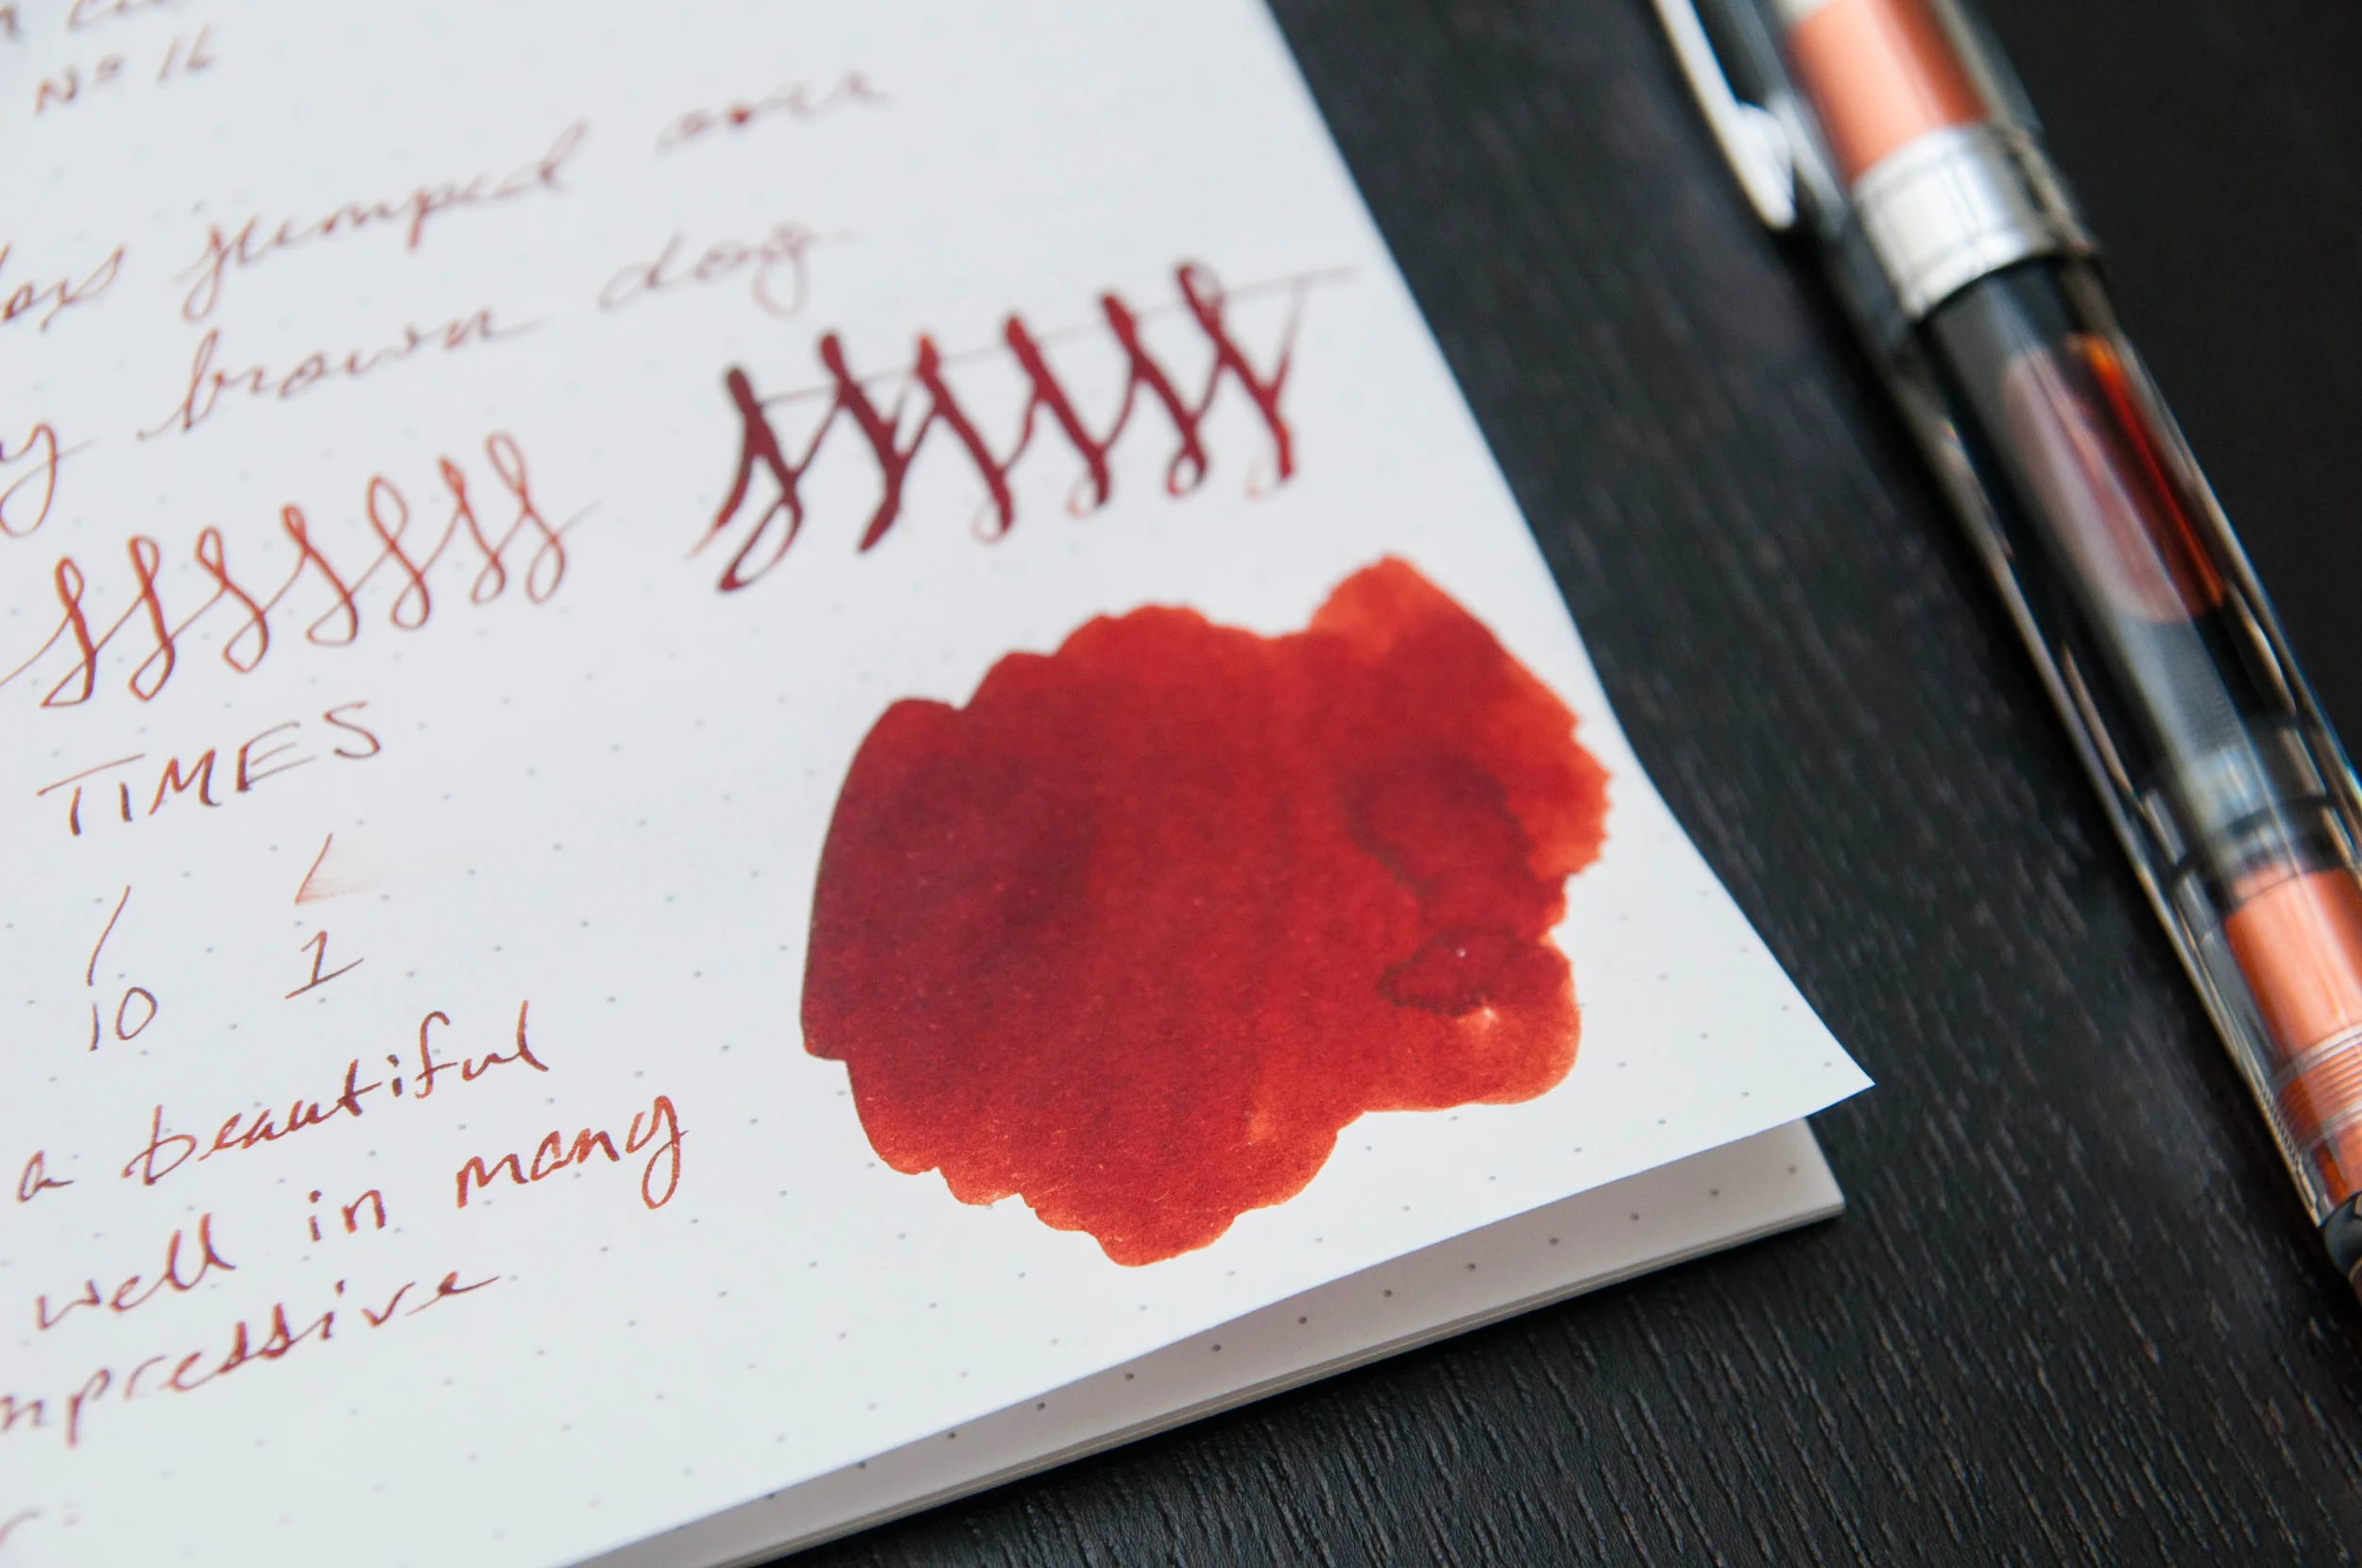 Nº 16
jumped over
brown dog.
TIMES
10 1
a beautiful
well in many
mpressive